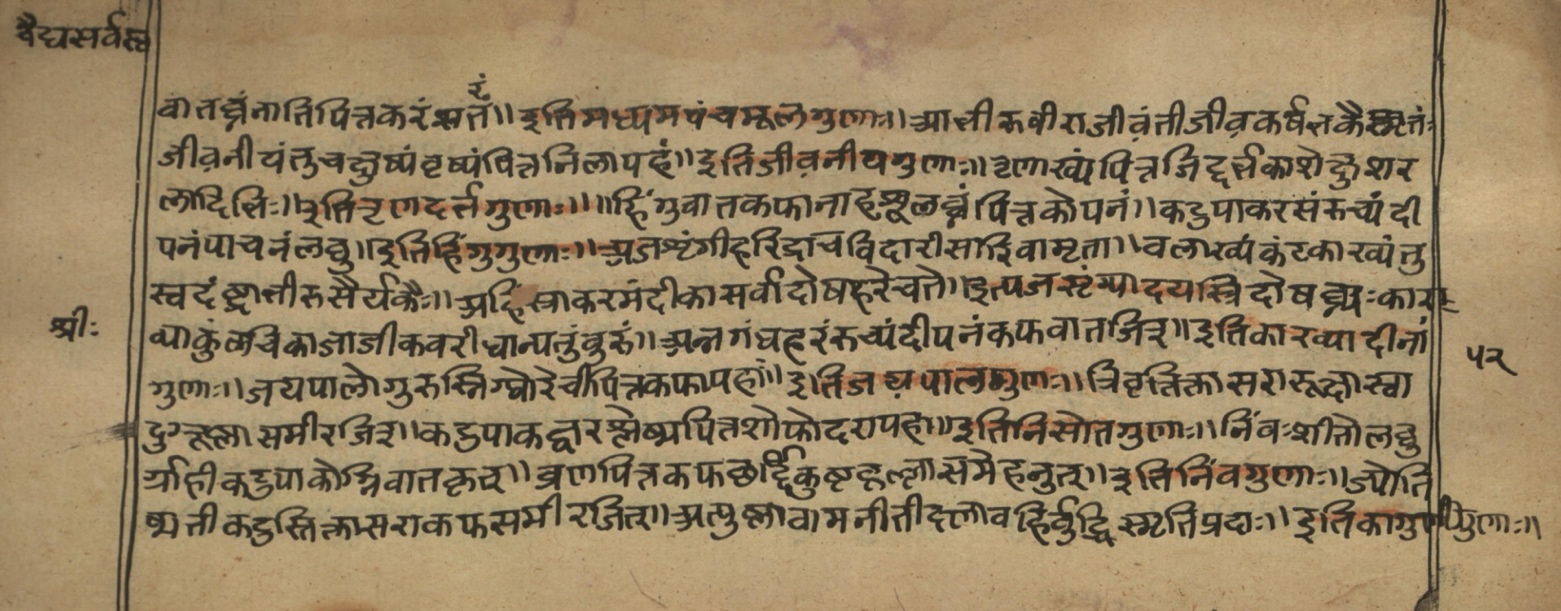 वैद्यसर्वस्व
वातघ्नंनातिपित्तकरंसरं॥इतिमध्यमपंचमूलगुणाः॥ जीवंतीजीवकर्षभकै
जीवनीयंतुचक्षुष्यंवृष्यंपित्तनिलापहं॥इतिजीवनीयगुणाः॥तृणाख्यं
॥इतितृणदर्त्तगुणाः॥॥हिंगुवातकफानाहशूलघ्नंपित्तकोपनं॥कटुपाकरसंरुच्यंदी
पनंपाचनंलघु॥इतिहिंगुगुणाः॥अजशृंगीहरिद्राचविदारीसारिवामृता॥वलाख्यंकंटकाख्यंतु
स्वदंष्ट्राभीरुसैर्यकैः॥ करमंदीकासर्वादोषहरेचते॥
व्याकुंचिकाजाजीकवरीधान्यतुंवुरुं॥अन्नगंधहरंरुच्यंदीपनंकफवातजित्॥इतिकारव्यादीनां
श्रीः
५२
गुणाः॥जयपालोगुरुस्निग्धोरेचीपित्तकफापहा॥इतिजयपालगुणाः॥त्रिवृत्तिक्तासरारूक्षास्वा
समीरजित्॥कटुपाकज्वरश्लेष्मपित्तशोफोदरापहा॥इतिनिसोतगुणाः॥निंवःशीतोलघु
र्ग्राहीकटुपाकोग्निवातकृत्॥व्रणपित्तकफछर्दिकुष्टहृल्लासमेहनुत्॥इतिनिंवगुणाः॥ज्योति
ष्मतीकटुस्तिक्तासराकफसमीरजित्॥अत्युष्णावामनीतीक्ष्णावह्निर्वुद्धिस्मृतिप्रदाः॥इतिकागुणीगुणाः॥